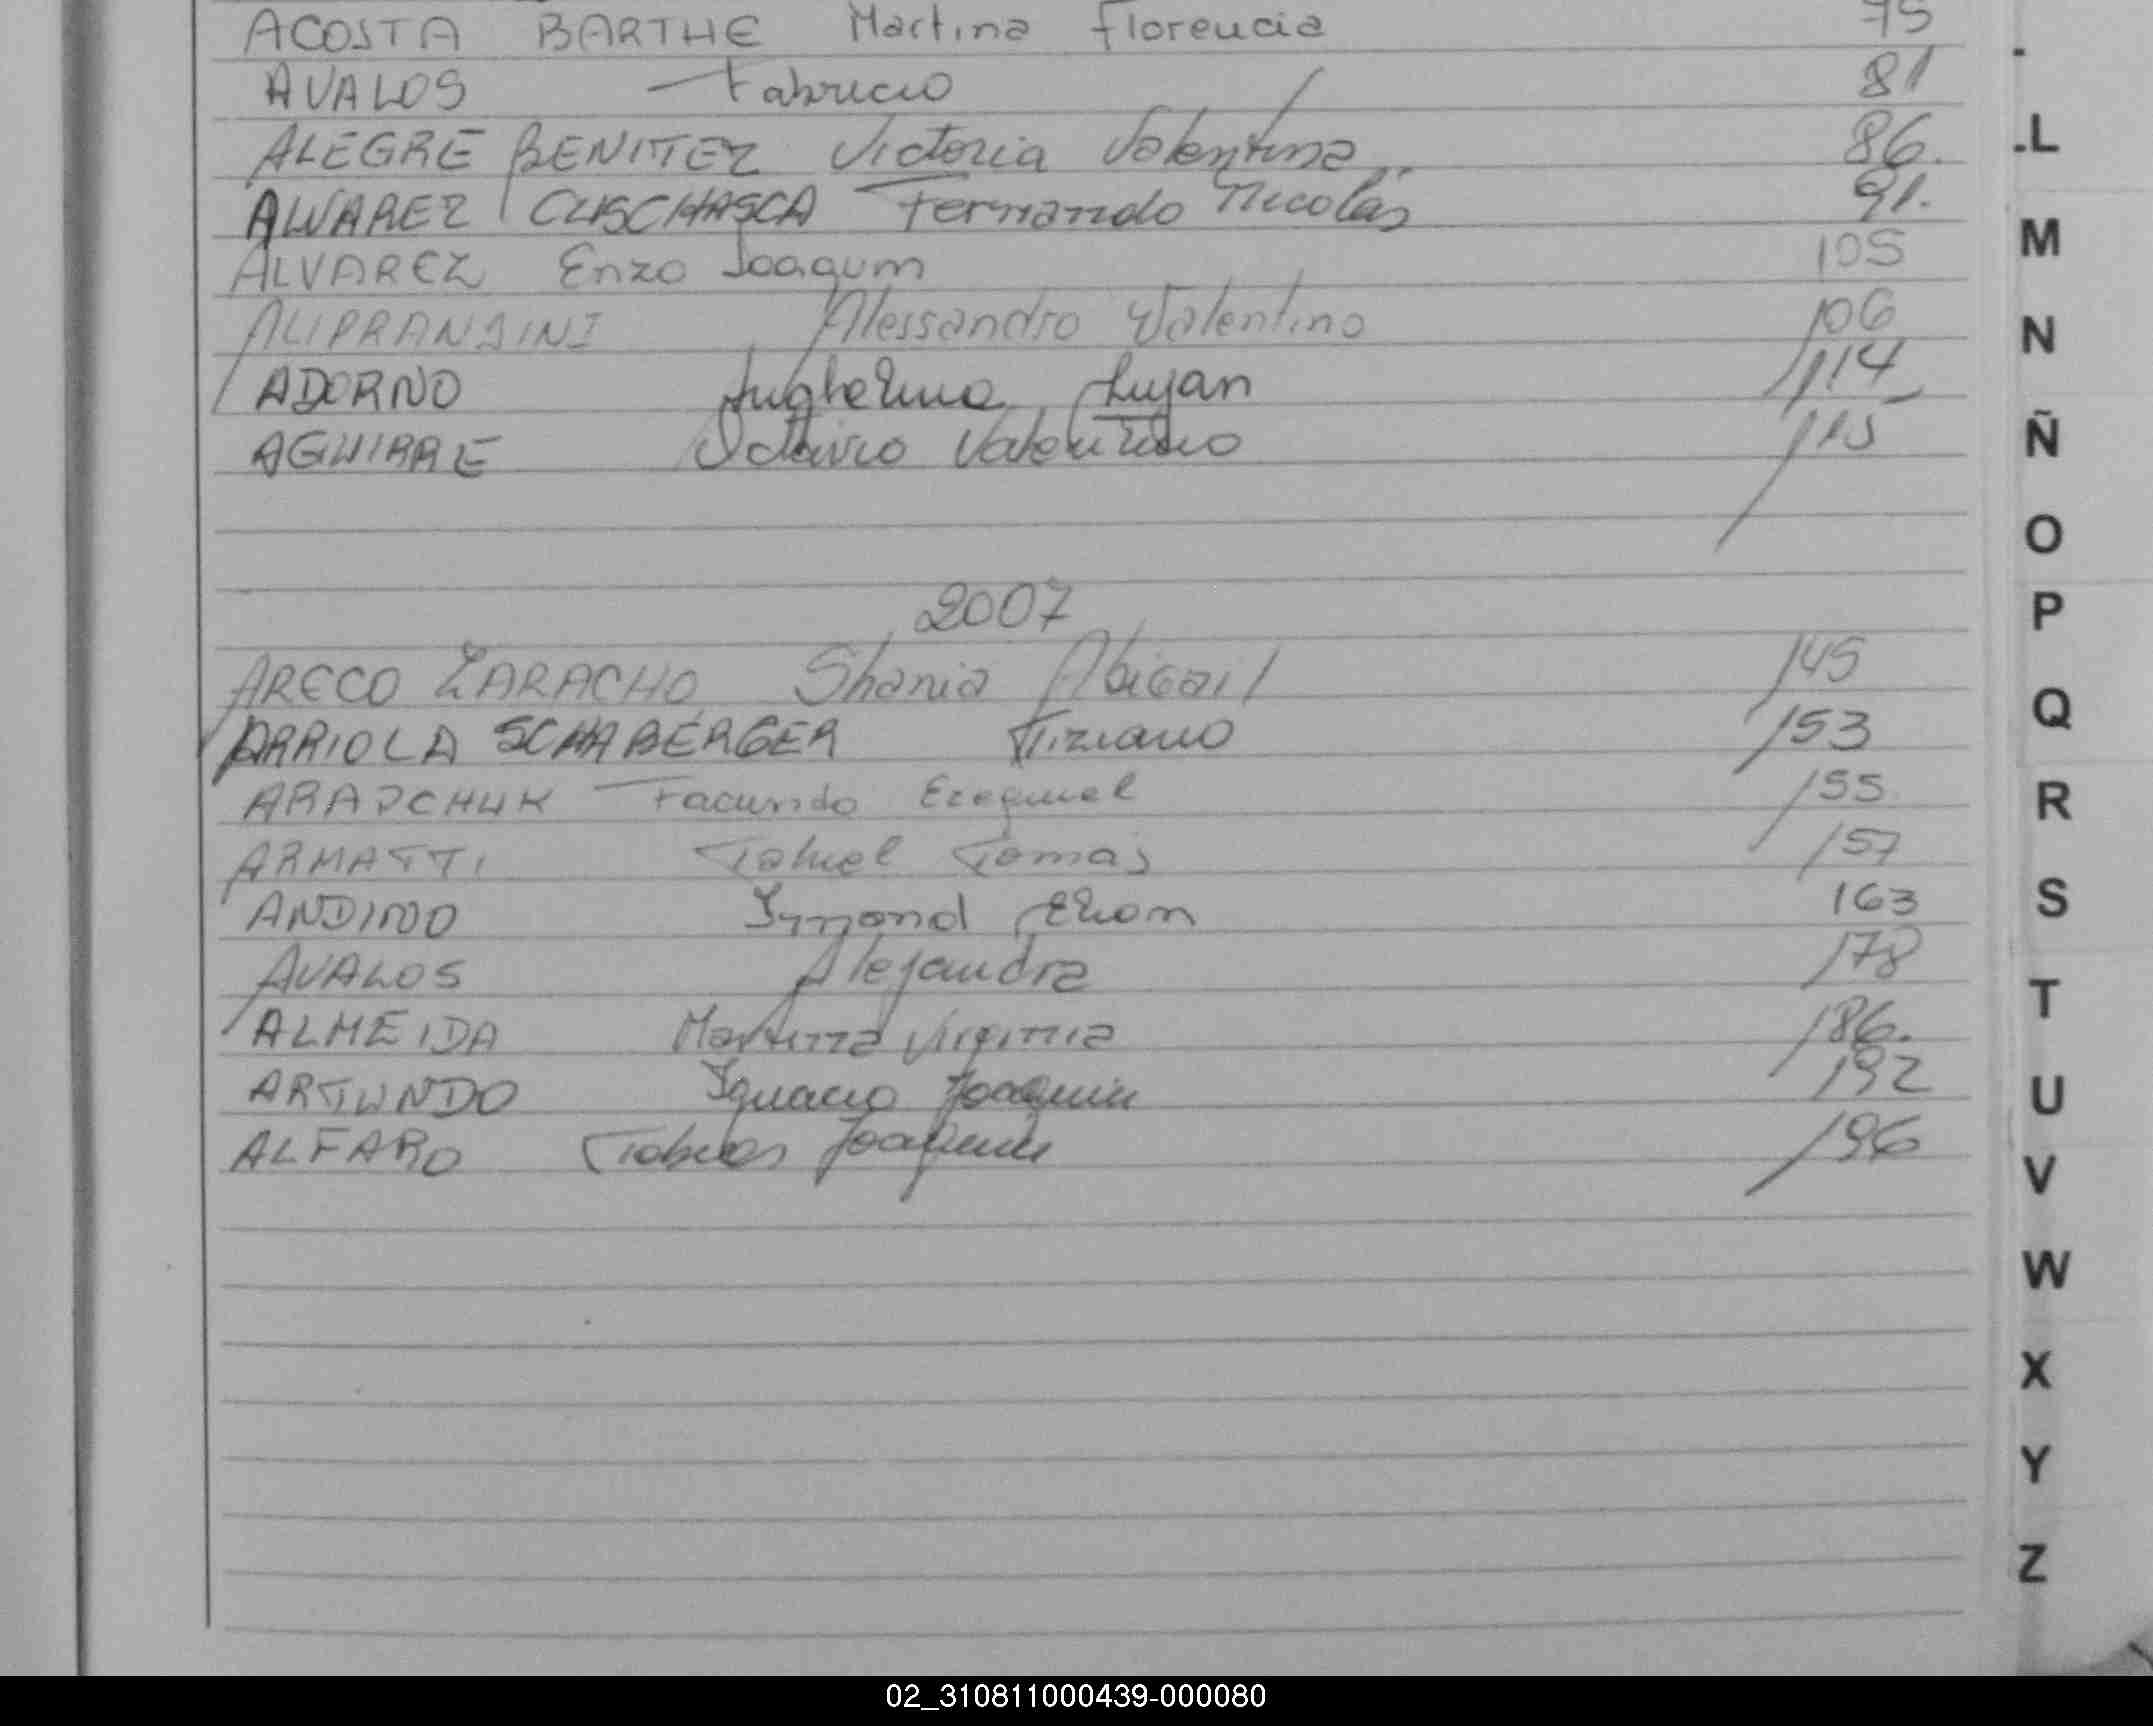 ACOSTA BARTHE Martina Florencia 75
AVALOS Fabricio 81
ALEGRE BENITEZ Victoria Valentina 86.
ALVAREZ Fernando Nicolás 91.
ALVAREZ Enzo Joaquin 105
ALIPRANDINI Alessandro Valentino 106
ADORNO Lujan 114
AGUIRRE Octavio Valentino 115
2007
ARECO ZARACHO Shania Abigail 145
ARRIOLA SCHABERGER Tiziano 153
Facundo Ezequiel 155
ARMATTI Tahiel Tomás 157
ANDINO 163
AVALOS Alejandra 178
ALMEIDA Martina Virginia 186.
ARTUNDO Ignacio Joaquin 192
ALFARO Tobias Joaquin 196
L
M
N
Ñ
O
P
Q
R
S
T
U
V
W
X
Y
Z
02_310811000439-000080